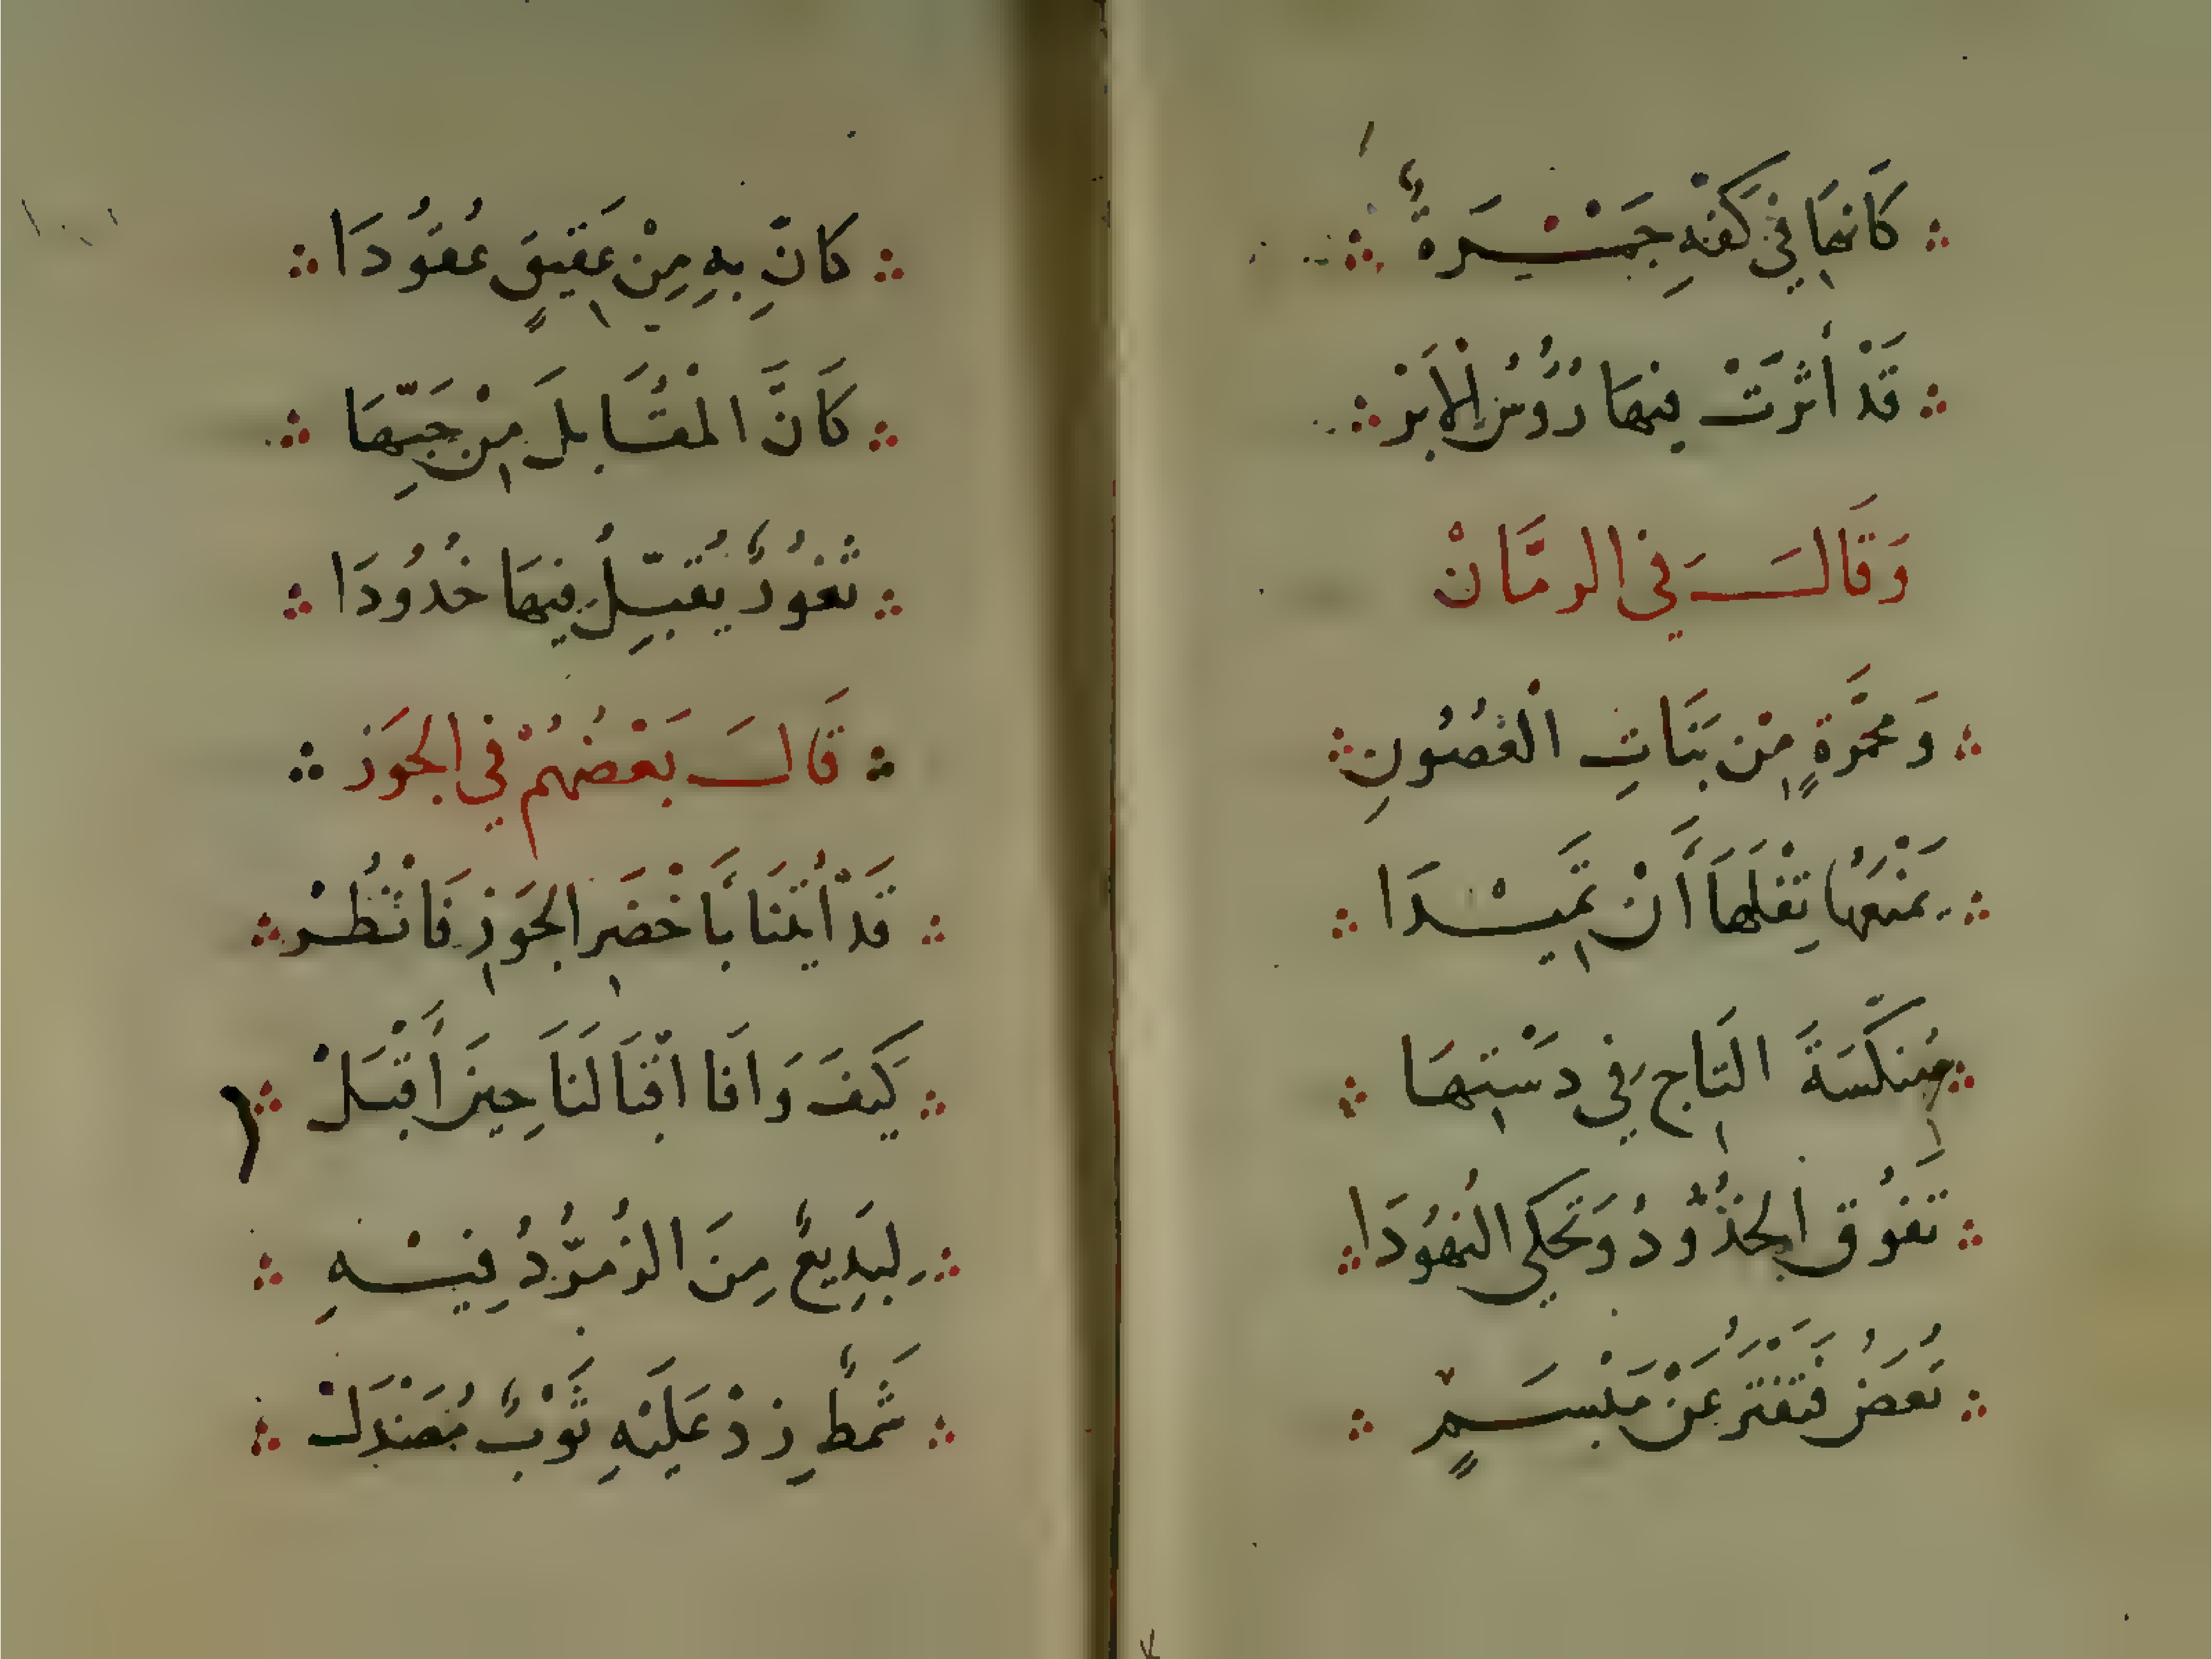 كَانهَا فِي كَفِهِ جَمْرَةٌ
قَدْ أَثرَتْ فِيهَا رُؤُسُ الْاِبَرْ
وَقَالَ فِي الرمَّانْ
وَمُحمَّرةٍ مِنْ بَنَاتِ الْغُصُونِ
يَمْنَعُهَا ثِقْلَهَا أَنْ تَمِيْدَا
مُنَكَّسَةَ التَّاجِ فِي دَسْتِهَا
تَفُوق الخُدُودُ وَتَحكي النُهُودَا
تُعَضُ فَتَفْتَرُ عَنْ مَبْسَمٍ
كَانَ بِهِ مِنْ عَقِيقٍ عُقُودَا
كَانَّ الْمقَابلَ مِنْ حَبِّهَا
ثُغُورٌ يُقَبِّلُ فِيهَا خُدُودَا
قَالَ بَعْضُهُمْ فِي الجَوَز
قَدْ أَتَيْنَا بَاخْضَرِ الجَوَزِ فَانْظُرْ
كَيَفَ وَافَا اقْبَالنَا حِينَ أَقْبَلْ
لِبَدِيعٌ مِنَ الزُمرّدُ فِيْهِ
عَلَيْهِ ثَوْبٌ مُصَنْدَلْ